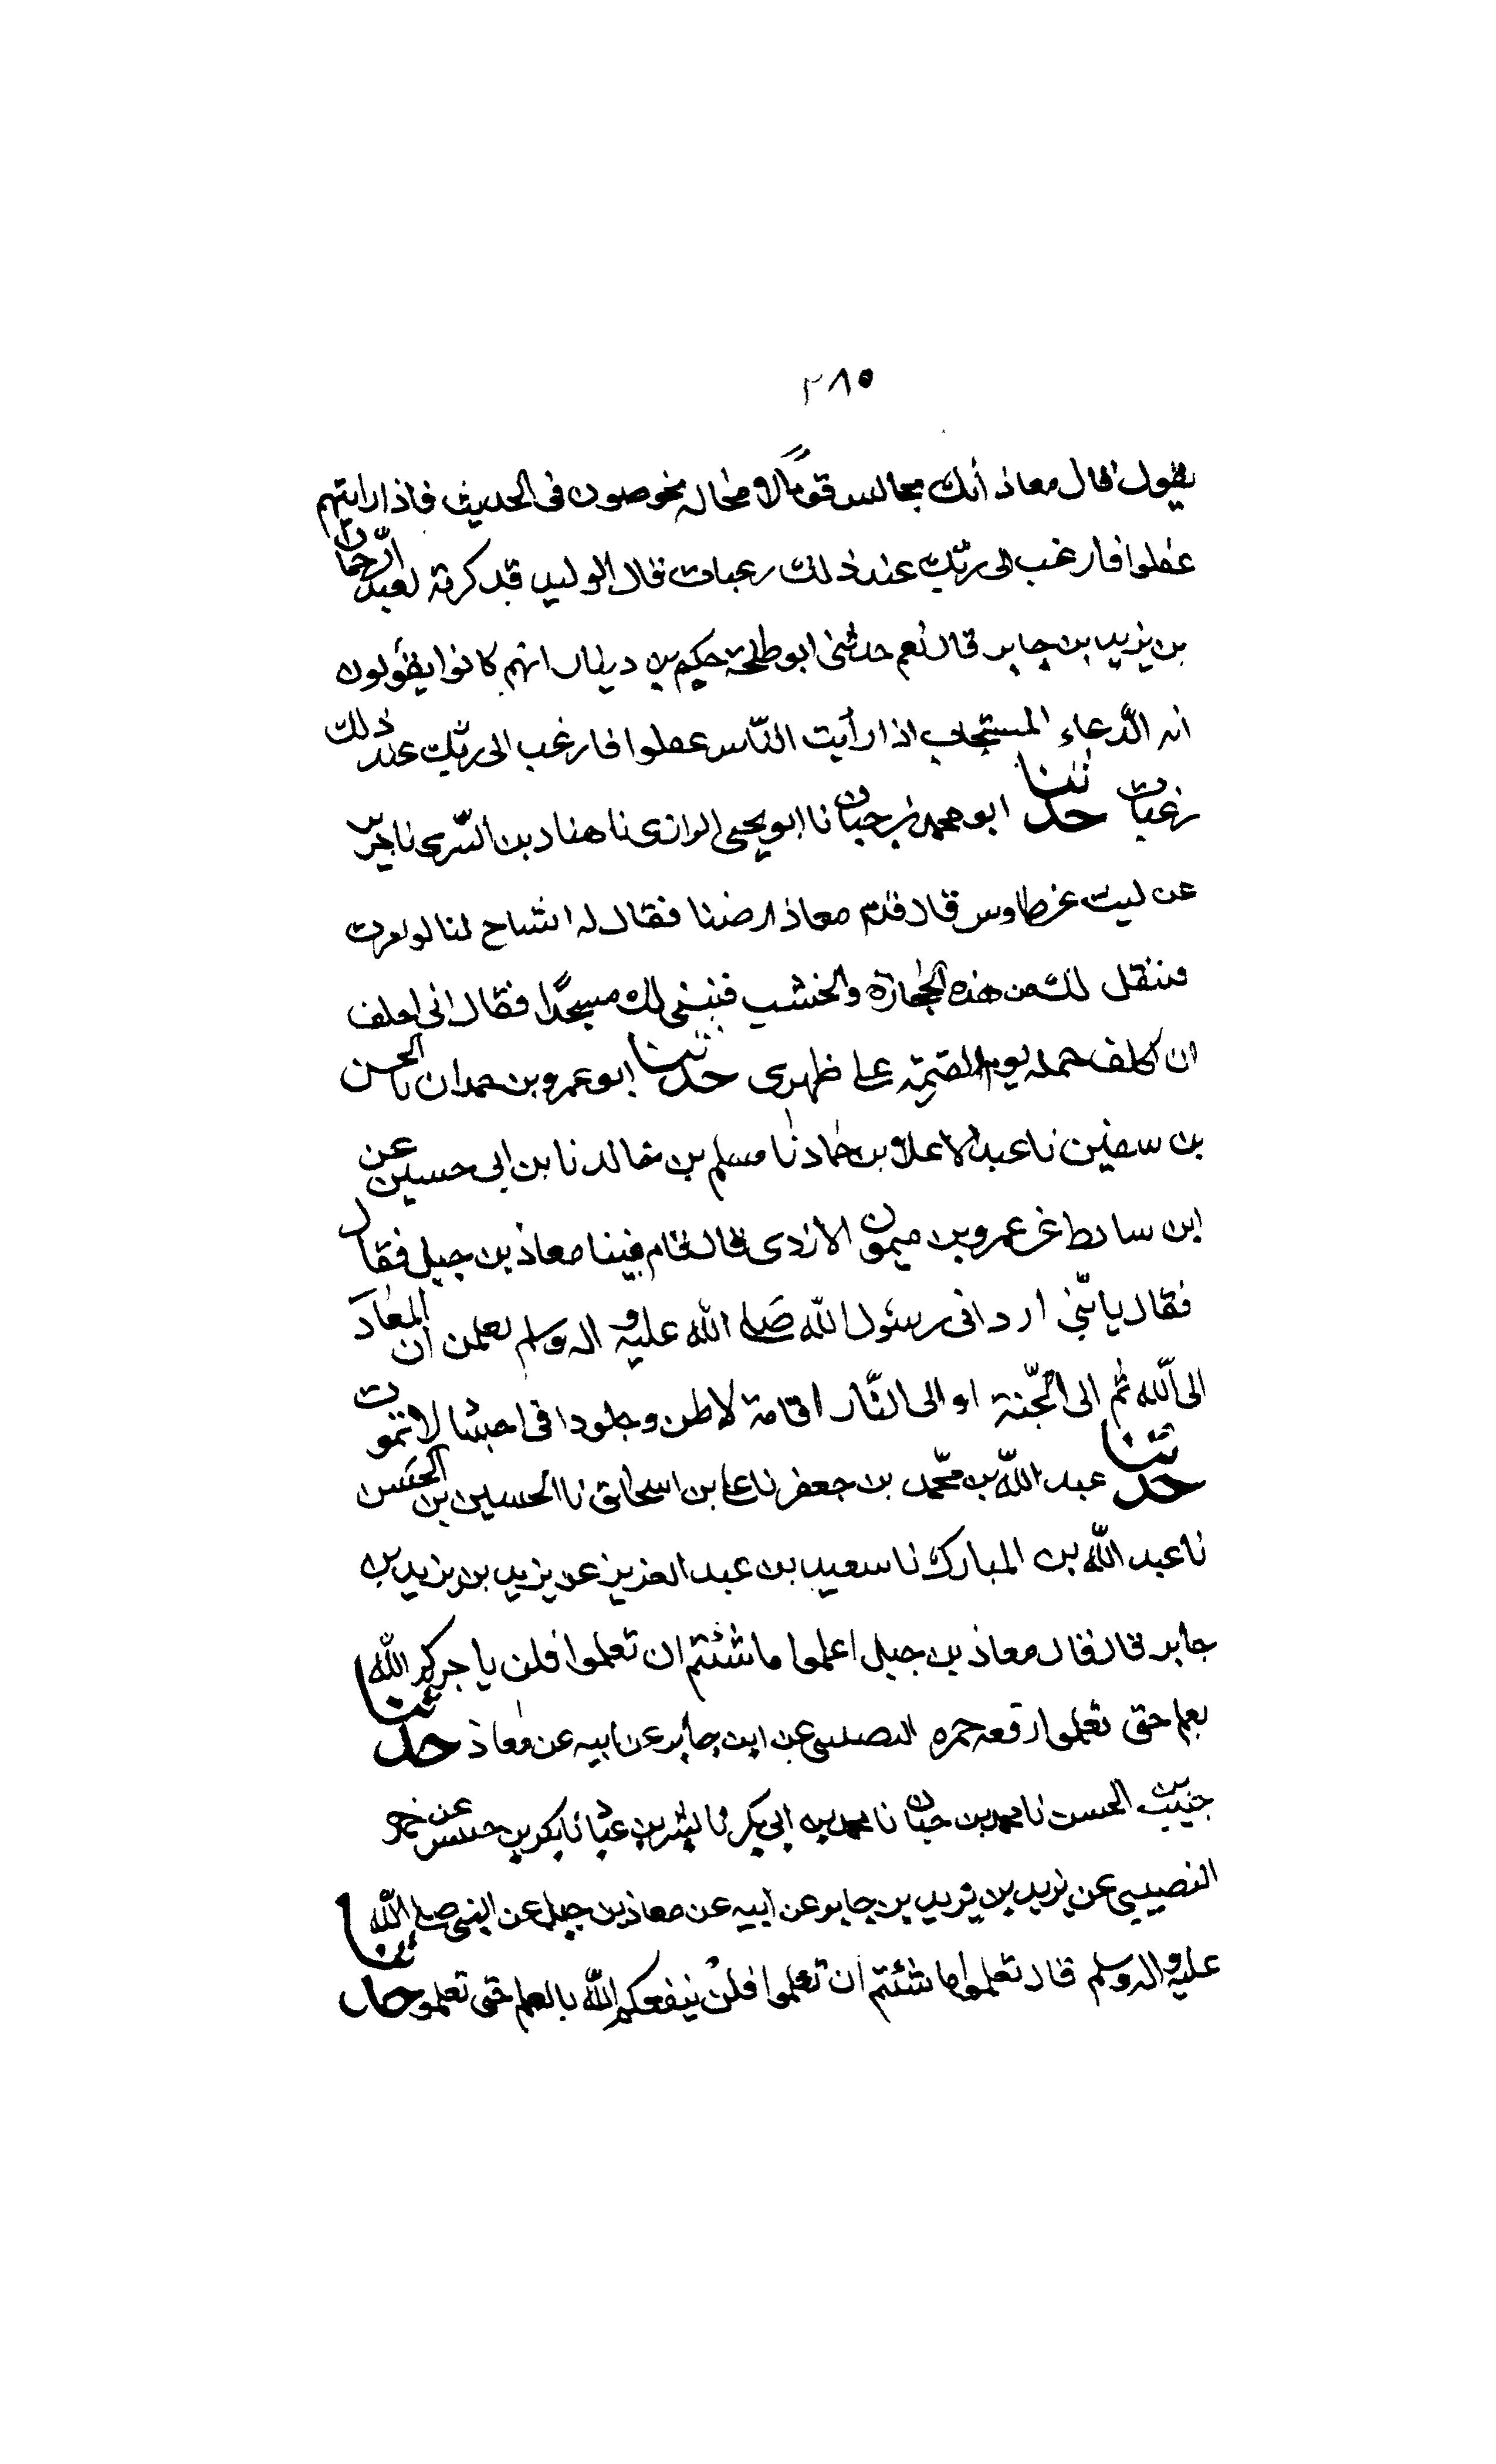 ٢٨٥
يقول قال معاذ أنك مجالس قومًا لا محاله يخوضون فى الحديث فاذا رايتهم
غفلوا فارغب الى ربّك عند ذلك رغبات قال الوليد قد كرته لعبد الرّحمان
بن يزيد بن جابر قال نعم حدثنى ابو طلحة حكيم بن دينار انهم كانوا يقولون
انه الدّعاء المستجاب اذا رأيت النّاس غفلوا فارغب الى ربّك عند ذلك
رغبات حدثنا ابو محمد بن حيان نا ابو يحيى الرازى نا هناد بن السّرى نا جرير
عن ليث عن طاوس قال قدم معاذ ارضنا فقال له اشياخ لنا لو امرت
فننقل لك من هذه الحجارة والخشب فنبنى لك مسجدًا فقال انى اخاف
ان اكلف حمله يوم القيمة على ظهرى حدثنا ابو عمرو بن حمدان نا الحسن
بن سفين نا عبد الاعلا بن حماد نا مسلم بن خالد نا بن ابى حسين عن
ابن سابط عن عمرو بن ميمون الازدى قال قام فينا معاذ بن جبل فقال
فقال يا بنى ارد انى رسول الله صلى الله عليه واله وسلم تعلمن ان المعاد
الى الله ثم الى الجنة او الى النّار اقامة لاظعن وخلودا فى اجساد لا تموت
حدثنا عبد اللّه بن محمّد بن جعفر نا على بن اسحاق نا الحسين بن الحسن
نا عبد اللّه بن المبارك نا سعيد بن عبد العزيز عن يزيد بن يزيد بن
جابر قال قال معاذ بن جبل اعلموا ما شئتم ان تعلموا فلن ياجركم الله
بعلم حتى تعلموا رفعه حمزه النصيبى عن ابن جابر عن ابيه عن معاذ حدثنا
حبيب بن الحسن نا محمد بن حيان نا محمد بن ابى بكر نا بشر بن عباد نا بكر بن خنيس عن حمزة
النصيبى عن يزيد بن يزيد بن جابر عن ابيه عن معاذ بن جبل عن النبى صلى الله
عليه واله وسلم قال تعلموا ما شئتم ان تعلموا فلن ينفعكم اللّه بالعلم حتى تعلموا حدثنا